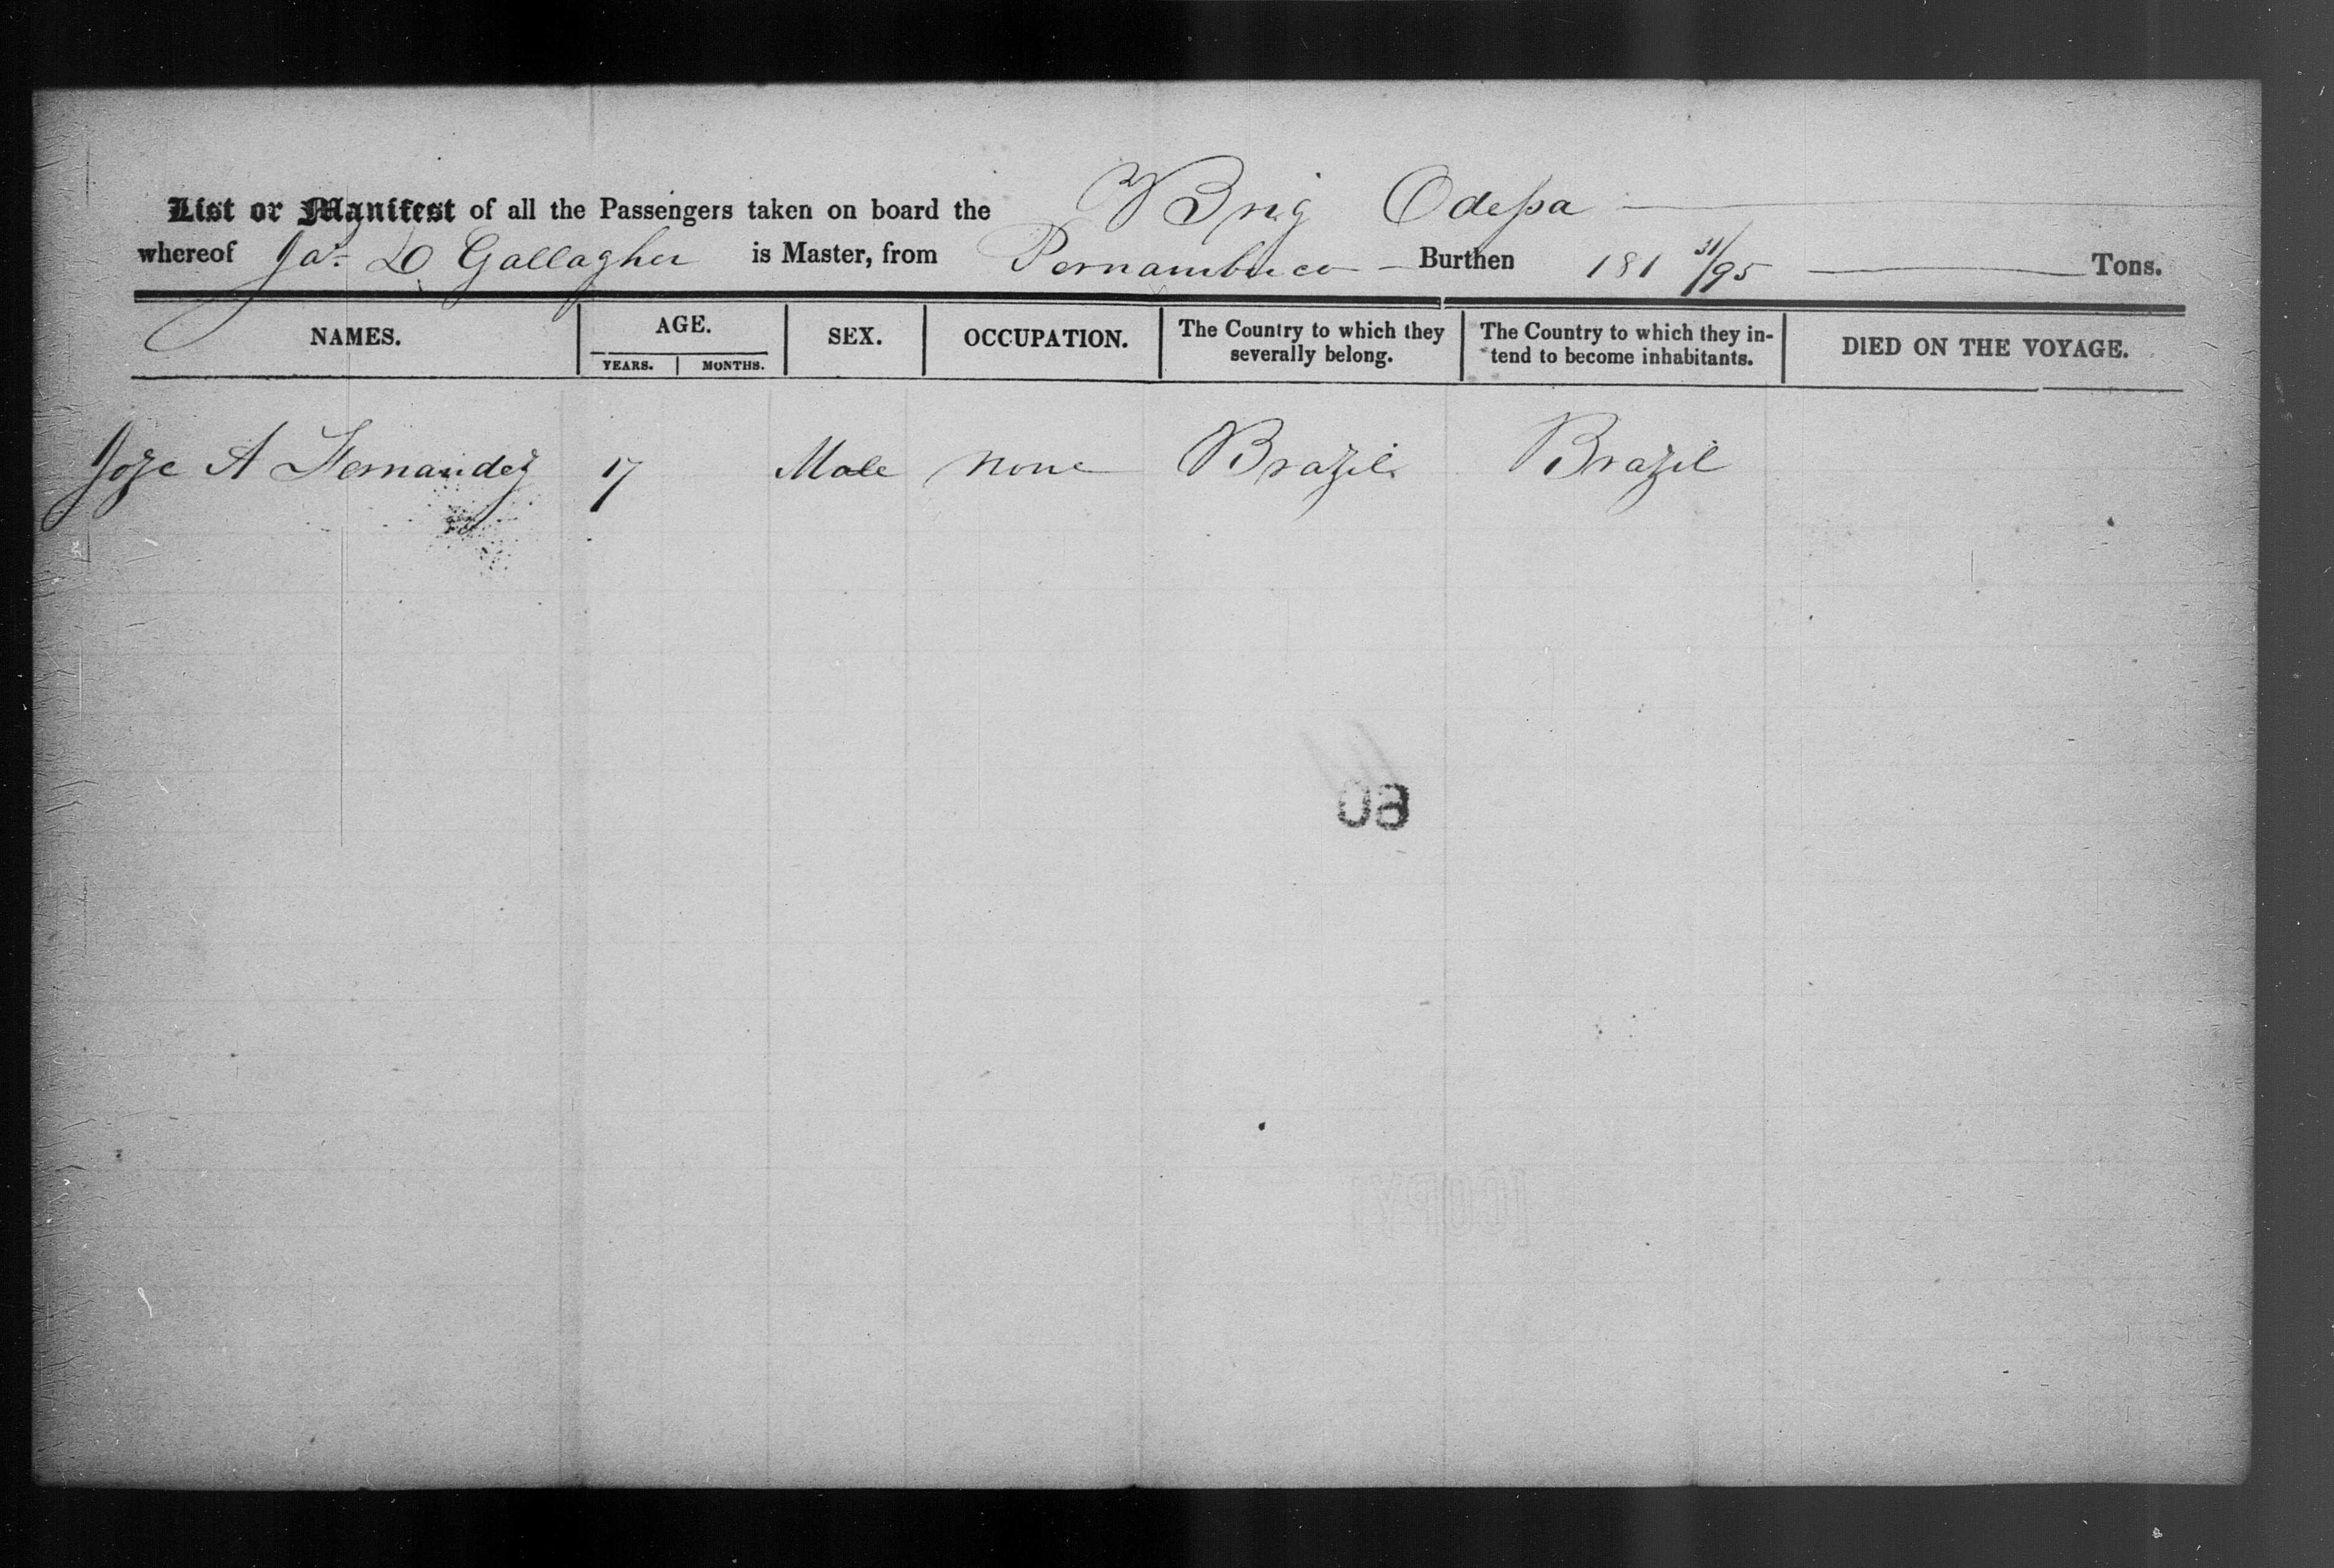 List or Manifest of all the Passengers taken on board the Brig Odeſsa
whereof Jas D Gallagher is Master, from Pernambuco Burthen 181 31/95 Tons.
NAMES. AGE. SEX. OCCUPATION. The Country to which they severally belong. The Country to which they in- tend to become inhabitants. DIED ON THE VOYAGE.
YEARS. MONTHS.
Joze A Fernandez 17 Male none Brazil Brazil
[COPY]